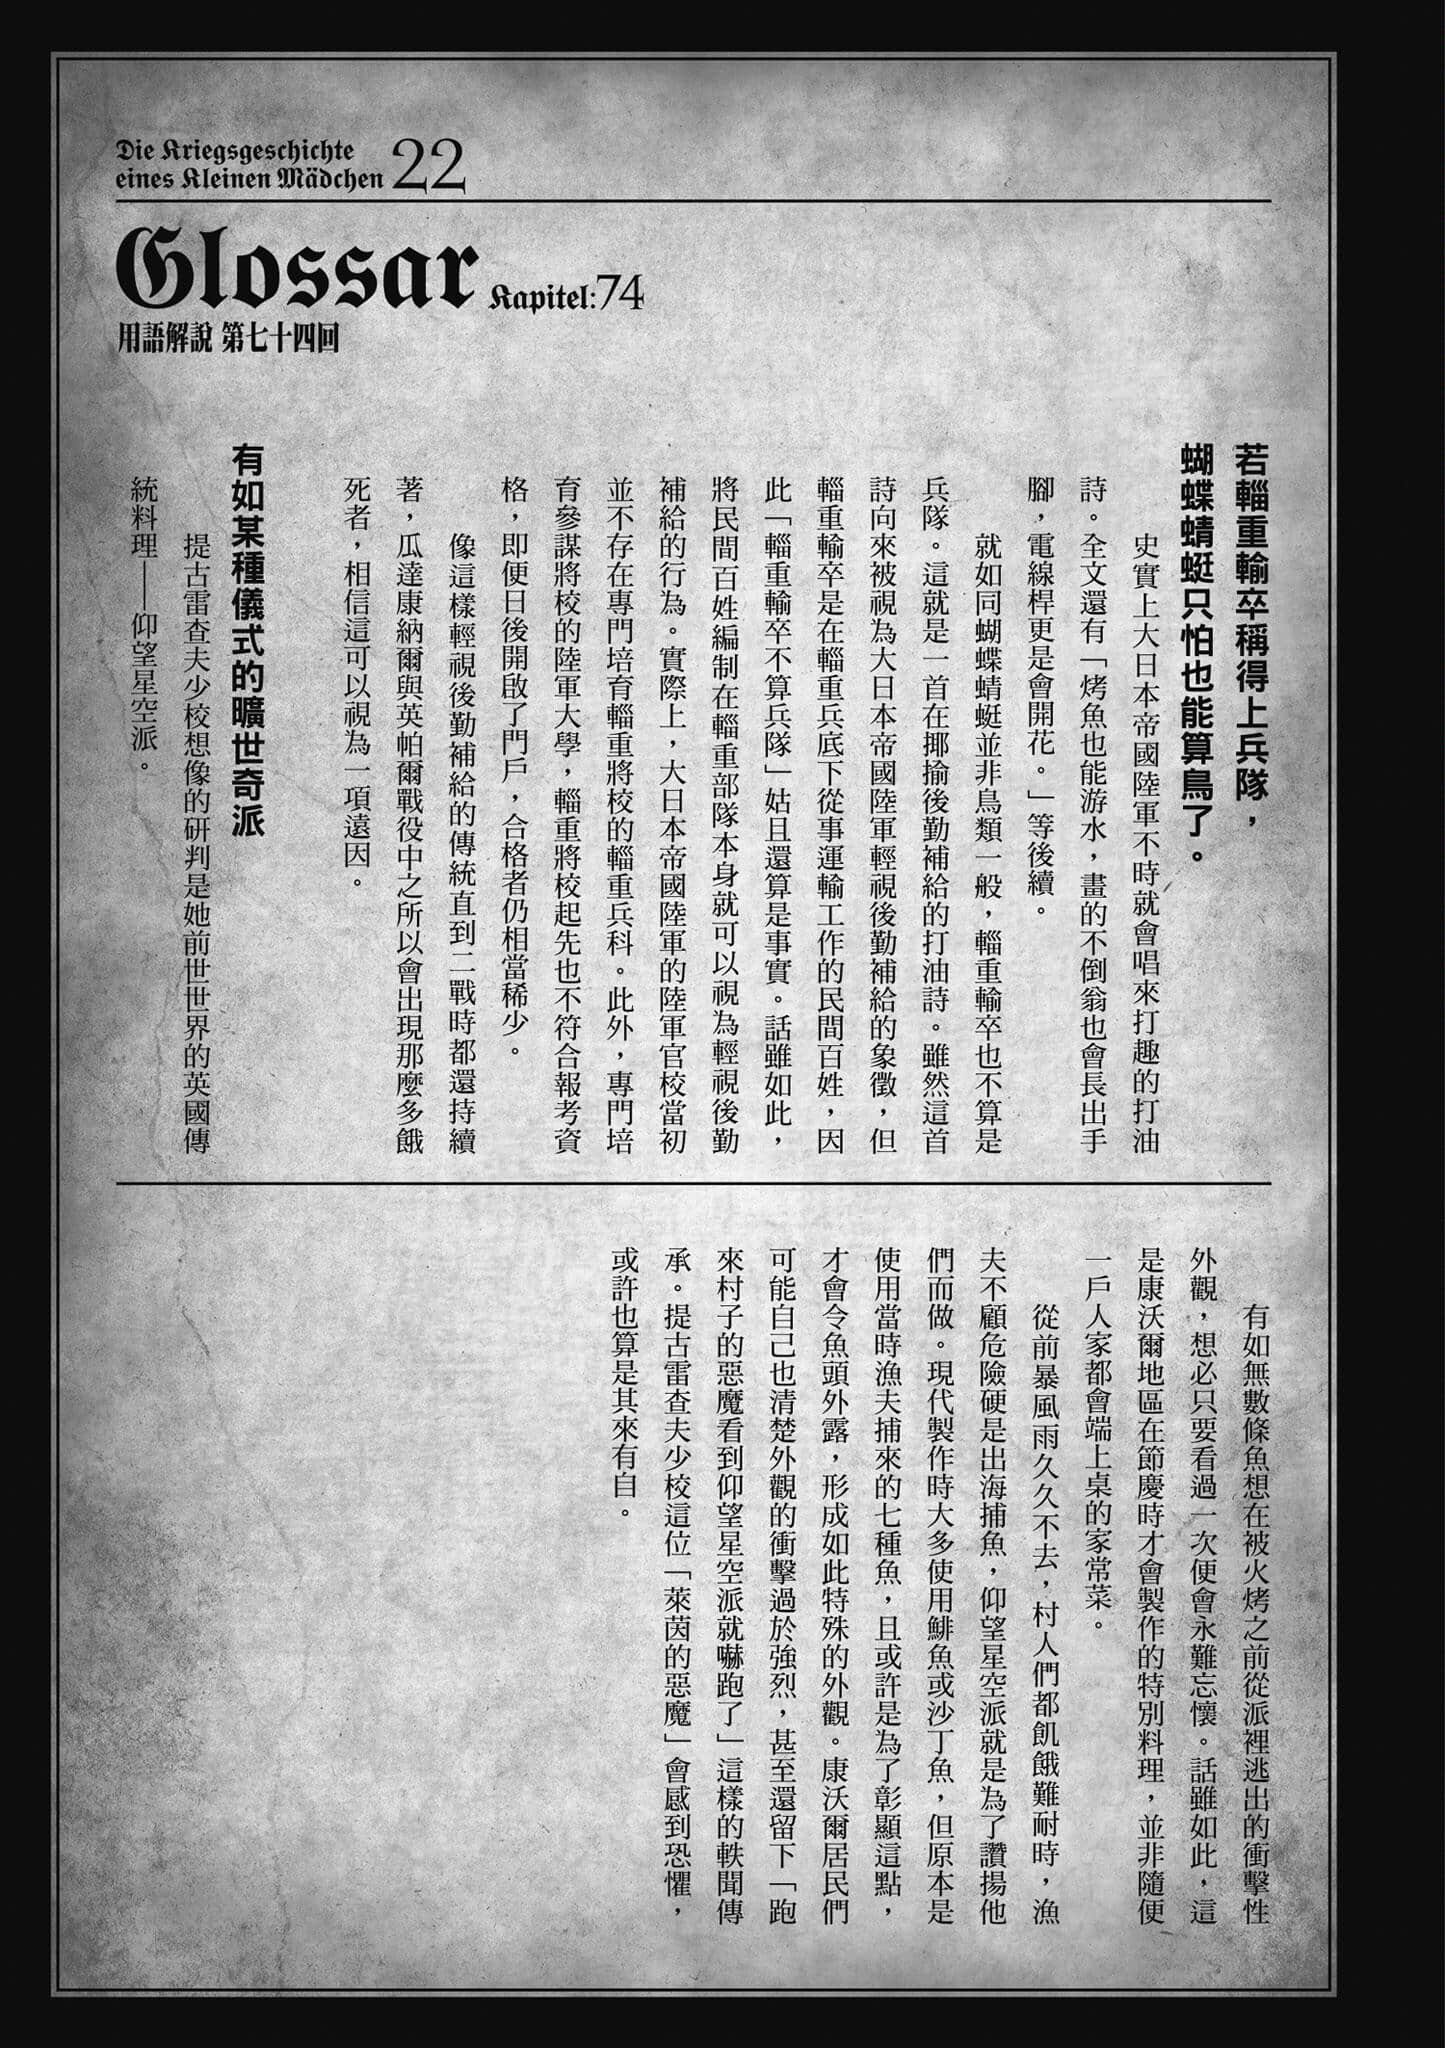 Die Kriegsgeschichte
eines Kleinen Mädchen 22
Glossar Kapitel:74
用語解說 第七十四回
若輜重輸卒稱得上兵隊，
蝴蝶蜻蜓只怕也能算鳥了。
史實上大日本帝國陸軍不時就會唱來打趣的打油
詩。全文還有「烤魚也能游水，畫的不倒翁也會長出手
腳，電線桿更是會開花。」等後續。
就如同蝴蝶蜻蜓並非鳥類一般，輜重輸卒也不算是
兵隊。這就是一首在揶揄後勤補給的打油詩。雖然這首
詩向來被視為大日本帝國陸軍輕視後勤補給的象徵，但
輜重輸卒是在輜重兵底下從事運輸工作的民間百姓，因
此「輜重輸卒不算兵隊」姑且還算是事實。話雖如此，
將民間百姓編制在輜重部隊本身就可以視為輕視後勤
補給的行為。實際上，大日本帝國陸軍的陸軍官校當初
並不存在專門培育輜重將校的輜重兵科。此外，專門培
育參謀將校的陸軍大學，輜重將校起先也不符合報考資
格，即便日後開啟了門戶，合格者仍相當稀少。
像這樣輕視後勤補給的傳統直到二戰時都還持續
著，瓜達康納爾與英帕爾戰役中之所以會出現那麼多餓
死者，相信這可以視為一項遠因。
有如某種儀式的曠世奇派
提古雷查夫少校想像的研判是她前世世界的英國傳
統料理——仰望星空派。
有如無數條魚想在被火烤之前從派裡逃出的衝擊性
外觀，想必只要看過一次便會永難忘懷。話雖如此，這
是康沃爾地區在節慶時才會製作的特別料理，並非隨便
一戶人家都會端上桌的家常菜。
從前暴風雨久久不去，村人們都飢餓難耐時，漁
夫不顧危險硬是出海捕魚，仰望星空派就是為了讚揚他
們而做。現代製作時大多使用鯡魚或沙丁魚，但原本是
使用當時漁夫捕來的七種魚，且或許是為了彰顯這點，
才會令魚頭外露，形成如此特殊的外觀。康沃爾居民們
可能自己也清楚外觀的衝擊過於強烈，甚至還留下「跑
來村子的惡魔看到仰望星空派就嚇跑了」這樣的軼聞傳
承。提古雷查夫少校這位「萊茵的惡魔」會感到恐懼，
或許也算是其來有自。